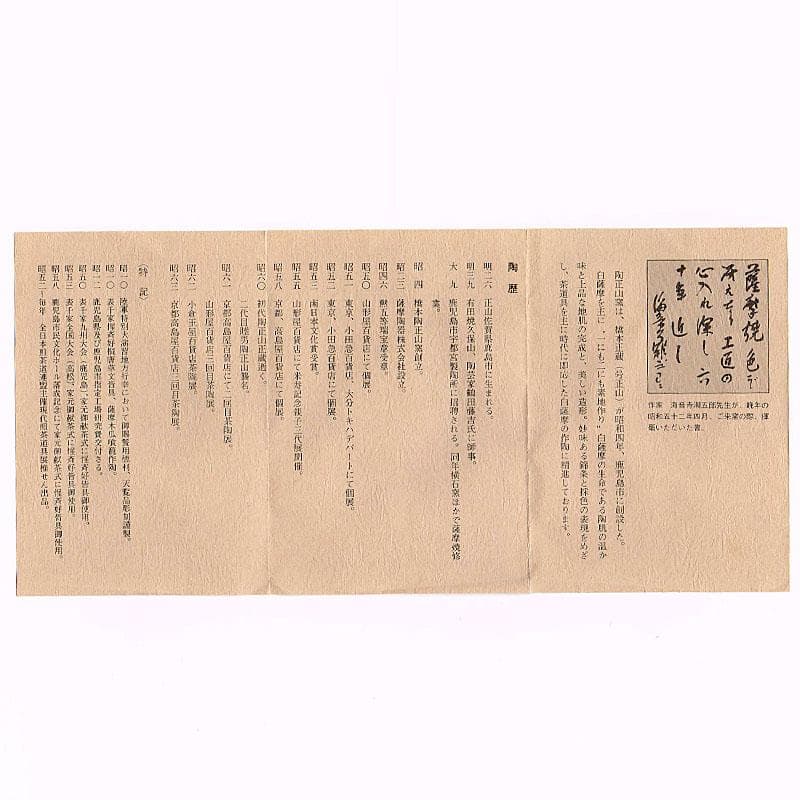 薩摩焼色
冴えたり工匠の
心入れ深し六
十年近し
作家 海音寺潮五郎先生が、晩年の
昭和五十二年四月、ご来窯の際、揮
毫いただいた書。
陶正山窯は、橋本正蔵(号正山)が昭和四年、鹿児島市に創設した。
白薩摩を主に、"一にも二にも素地作り"白薩摩の生命である陶肌の温か
味と上品な地肌の完成と、美しい造形。妙味ある錦条と採色の表現をめざ
し、茶道具を主に時代に即応した白薩摩の作陶に精進しております。
陶歴
明二六 正山佐賀県鹿島市に生まれる。
明三九 有田焼久保山、陶芸家鶴田藤吉氏に師事。
大九 鹿児島市宇都宮製陶所に招聘される。同年横石窯ほかで薩摩焼修
業。
昭四 橋本陶正山窯創立。
昭二三 薩摩陶器株式会社設立。
昭四六 勲五等瑞宝章受章。
昭五〇 山形屋百貨店にて個展。
昭五一 東京、小田急百貨店、大分トキハデパートにて個展。
昭五二 東京、小田急百貨店にて個展。
昭五三 南日本文化賞受賞。
昭五五 山形屋百貨店にて米寿記念親子三代展開催
昭五八 京都、高島屋百貨店にて個展。
昭六〇 初代陶正山正蔵逝く。
二代目睦男陶正山襲名。
昭六一 京都高島屋百貨店にて二回目茶陶展。
山形屋百貨店二回目茶陶展。
昭六二 小倉玉屋百貨店茶陶展。
昭六三 京都高島屋百貨店三回目茶陶展。
(特記)
昭一〇 陸軍特別大演習地方行幸において御賜餐用徳利、天覧品彫刻謹製。
昭一〇 表千家惺斉好桐唐草文皆具、薩摩木瓜喰籠作陶
昭二二 鹿児島県及び鹿児島市指定工場研究費交付さる。
昭五〇 表千家九州大会(鹿児島)、家元御献茶式に惺斉好皆具御使用。
昭五三 表千家全国大会(高松)、家元御献茶式に惺斉好皆具御使用。
昭五八 鹿児島市民文化ホール落成記念にて家元御献茶式に惺斉好皆具御使用。
昭五二―毎年、全日本煎茶道連盟主催現代煎茶道具展推せん出品。